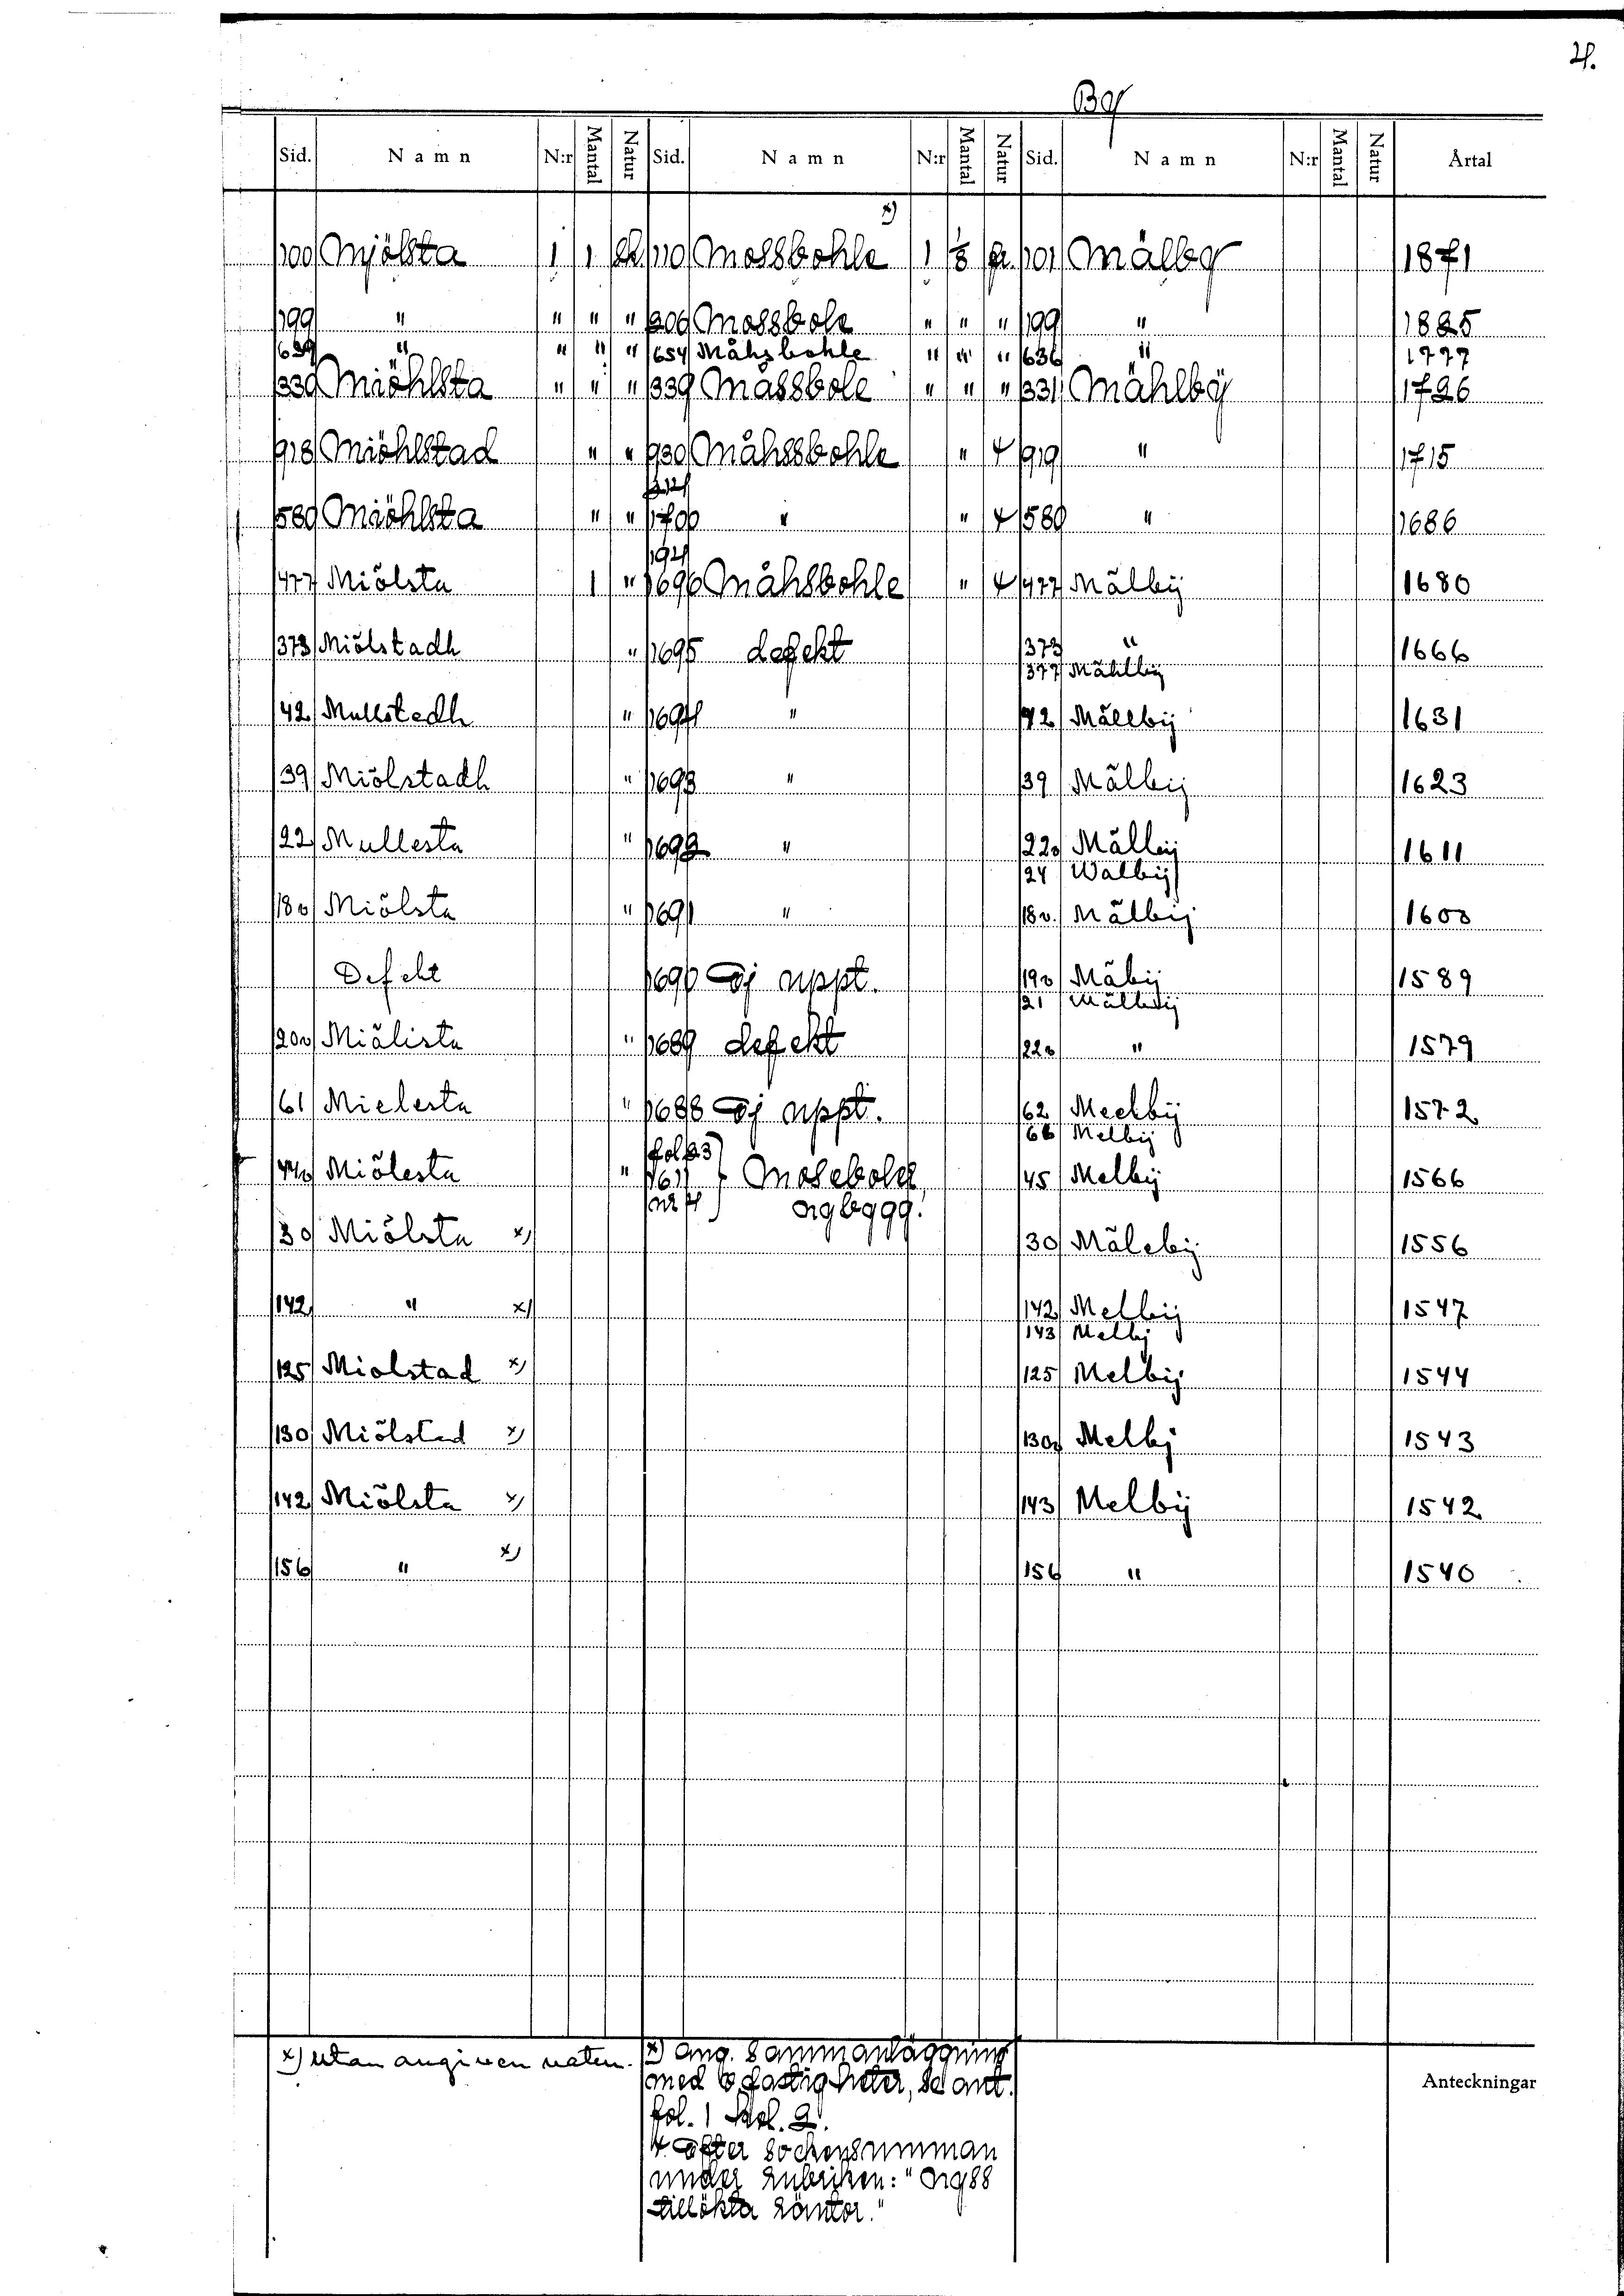 4.
By
Sid. Namn N:r Mantal Natur Sid. Namn N:r Mantal Natur Sid. Namn N:r Mantal Natur Årtal
x)
100 Mjölsta 1 1 Sk. 110 Mossbohle 1 1/8 fr. 101 Mälby 1871
199 " " " " 206 Mossbole " " " 199 " 1825
639 " " " " 654 Måhsbohle " " " 636 " 1777
330 Miöhlsta " " " 339 Massbole " " " 331 Mählbÿ 1726
918 Miöhlstad " " 930 Måhssbohle " + 919 " 1715
212
580 Miöhlsta " " 1700 " " + 580 " 1686
194
477 Miölsta 1 " 1696 Måhsbohle " + 477 Mälbÿ 1680
373 Miölstadh " 1695 defekt 373 " 1666
377 Mählbÿ
42 Mullstedh " 1694 " 42 Mällbij 1631
39 Miölstadh " 1693 " 39 Mälbij 1623
22 Mullesta " 1692 " 22v Mälbij 1611
24 Walbij
18v Miölsta " 1691 " 18v. Mälbij 1600
Defekt 1690 Ej uppt. 19v Mäbij 1589
21 Mälbij
20v Miölista " 1689 defekt 22v " 1579
61 Mielesta " 1688 Ej uppt. 62 Meelbij 1572
66 Melbij
fol 23
44v Miölesta " 1611 } Mosebolet 45 Melbij 1566
nr 4 nybygg.
30 Miölsta x) 30 Mälebij 1556
142 " x) 142 Melbij 1547
143 Melbj
125 Miolstad x) 125 Melbij 1544
130 Miölstad x) 130v Melbj 1543
142 Miölsta x) 143 Melbij 1542
156 " x) 156 " 1540
x) Utan angiven natur.
x) ang. Sammanläggning
med 6 fastigheter, se ant.
fol. 1 kol. 2.
+ Efter sockensumman
under rubriken: "Ny88
tillökta räntor."
Anteckningar